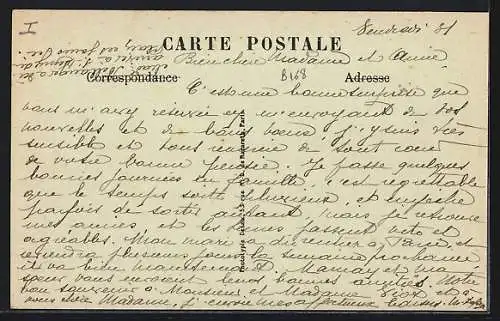 I
Vendredi 31
CARTE POSTALE
Bien chère Madame et Amie
Correspondance
B168
Adresse
C'est une bonne surprise que
vous m'avez réservée en m'envoyant de vos
nouvelles et de bons vœux j'y suis très
sensible et vous remercie de tout cœur
de votre bonne pensée. Je passe quelques
bonnes journées en famille, c'est regrettable
que le temps soit pluvieux, et empêche
parfois de sortir autant, mais je retrouve
mes amies et les heures passent vite et
agréables. Mon mari a dû rentrer à Paris, et
reviendra plusieurs jours la semaine prochaine
Maman et ma
sœur vous envoient leurs bonnes amitiés. Notre
bon souvenir à Monsieur et Madame
Madame, mes affectueux baisers